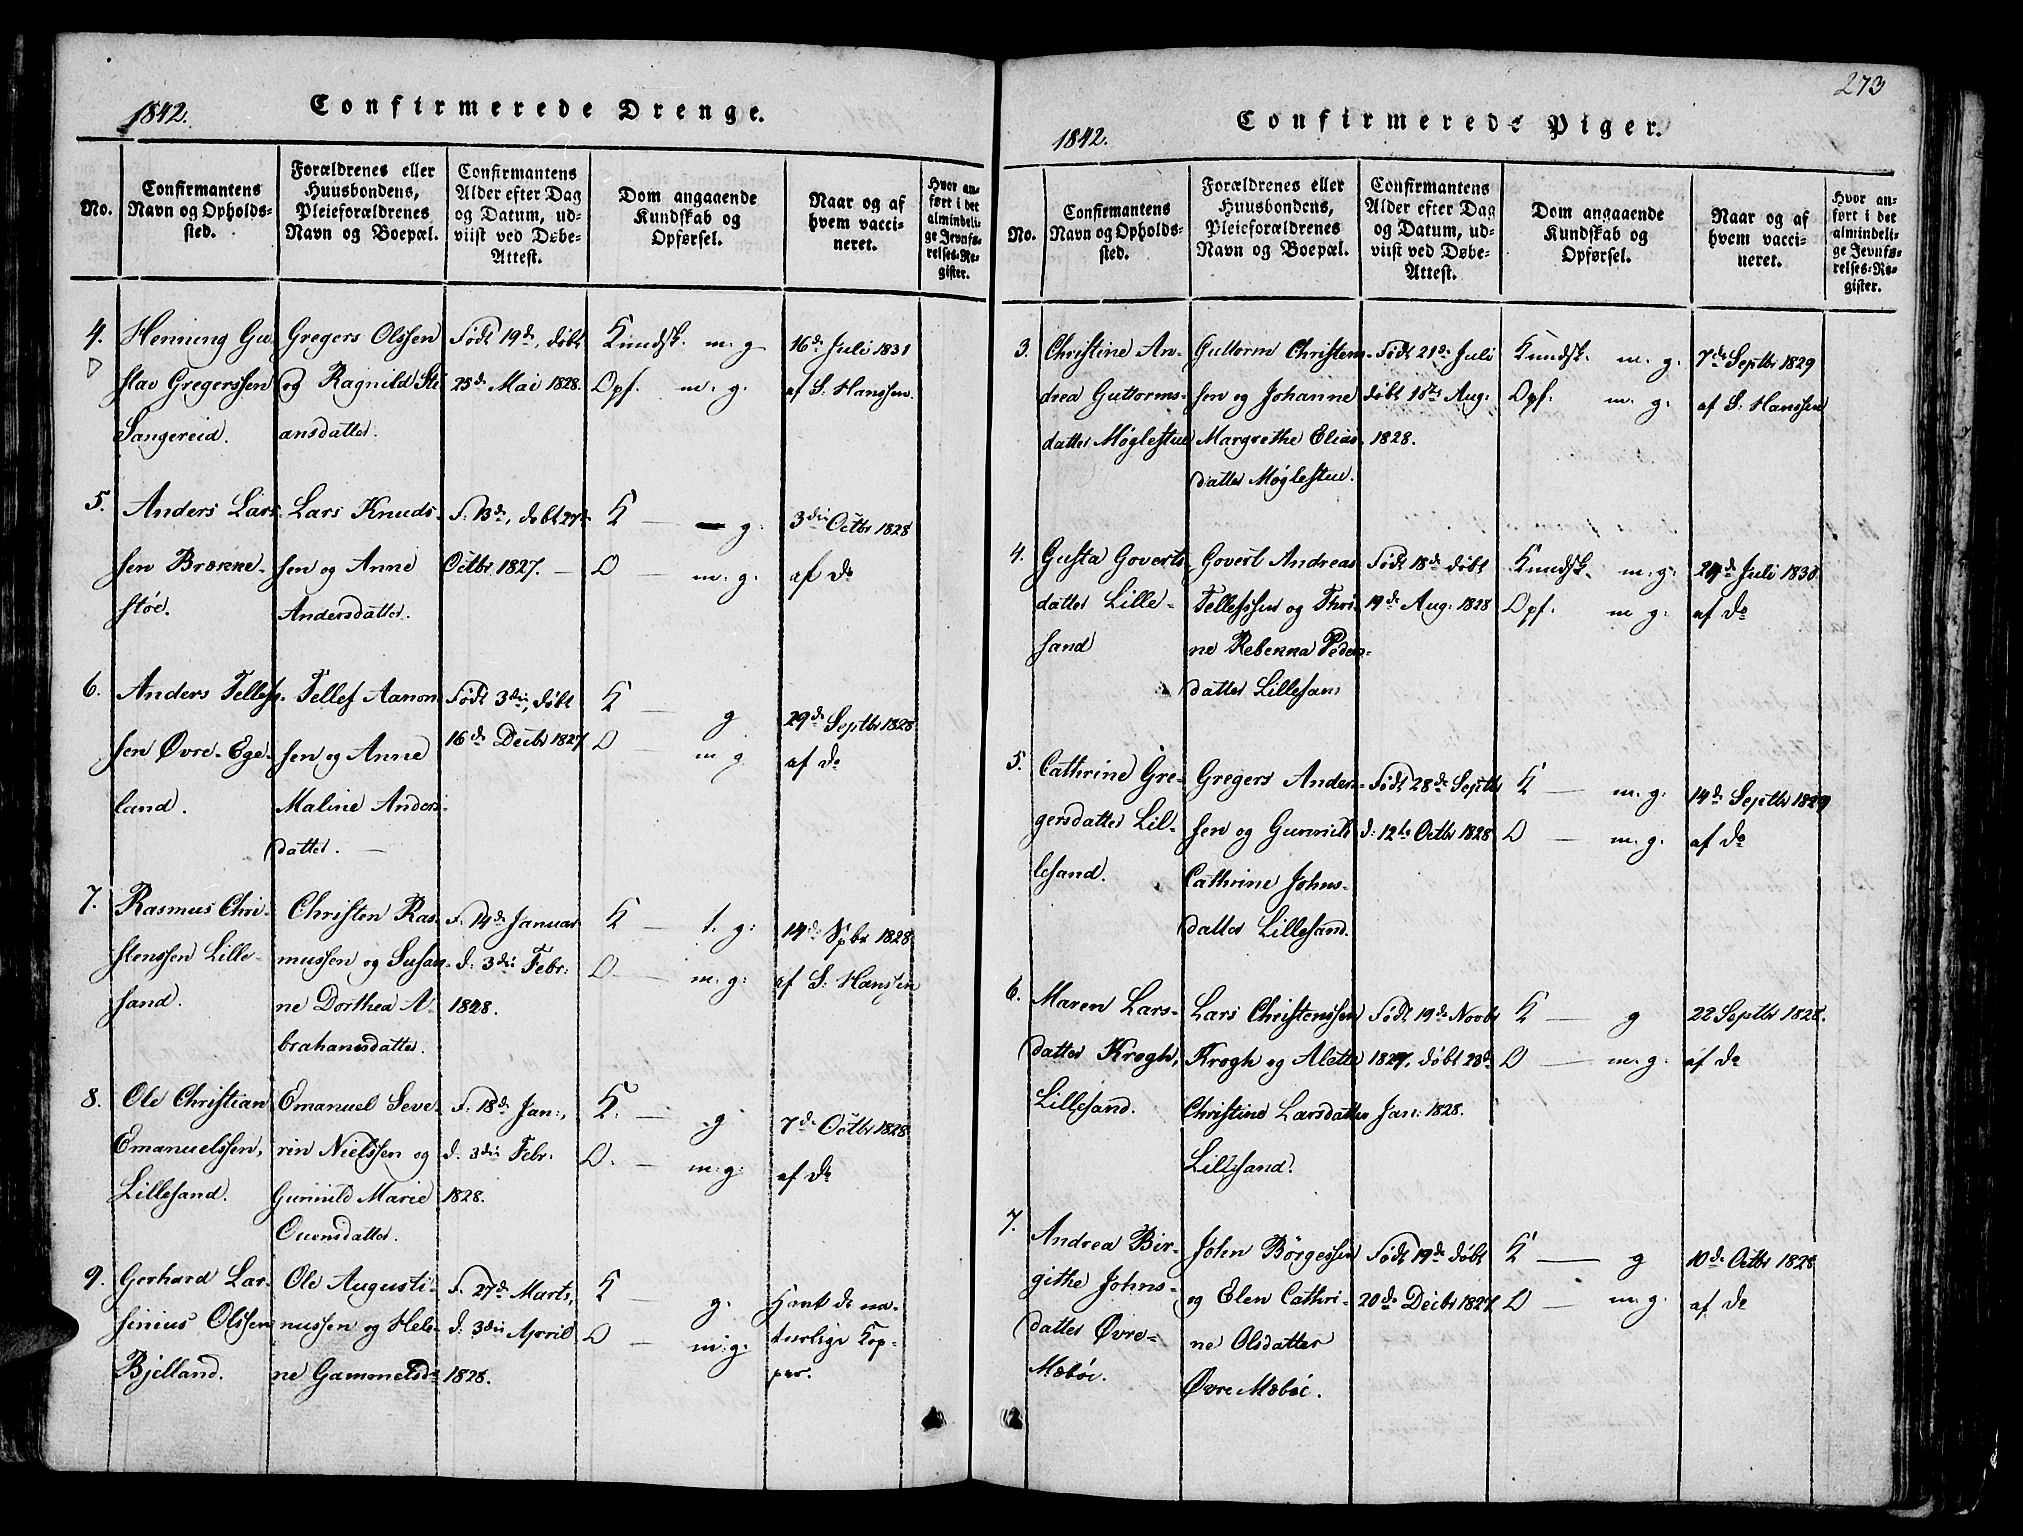 1842.
Confirmerede Drenge.
No.
Confirmantens
Navn og Opholds-
sted.
Forældrenes eller
Huusbondens,
Pleieforældrenes
Navn og Boepæl.
Confirmantens
Alder efter Dag
og Datum, ud-
viist ved Døbe-
Attest.
Dom angaaende
Kundskab og
Opførsel.
Naar og af
hvem vacci-
neret.
Hvor an-
ført i det
almindeli-
ge Jevnfø-
relses-Re-
gister.
4.
Henning Gu-
stav Gregerssen
Sangereid.
Gregers Olssen
og Ragnild Sti-
ansdatter.
Født 19de, døbt
25de Mai 1828.
Kundsk. m. g
Opf. m. g.
16de Juli 1831
af S. Hanssen.
5.
Anders Lars-
sen Brække-
støe.
Lars Knuds-
sen og Anne
Andersdatter.
F. 13de, døbt 27de
Octbr. 1827. —
K — g.
O — m. g.
3die Octbr 1828
af do
6.
Anders Tellefs-
sen Øvre-Ege-
land.
Tellef Aanon-
sen og Anne
Maline Anders-
datter. —
Født 3die, døbt
16de Decbr 1827
K — g
O — m g.
29de Septbr 1828
af do
7.
Rasmus Chri-
stenssen Lille-
sand.
Christen Ras-
mussen og Susan-
ne Dorthea A-
brahamsdatter.
F. 14de Januar
d. 3die Febr:
1828.
K — t. g.
O — m. g.
14de Spbr 1828
af S. Hanssen
8.
Ole Christian
Emanuelssen,
Lillesand.
Emanuel Seve-
rin Nielssen og
Gunnild Marie
Ouensdatter.
F. 18de Jan:,
d. 3die Febr.
1828.
K. — g
O. — m. g.
7de Octbr 1828
af do
9.
Gerhard Lar-
sinius Olssen
Bjelland.
Ole Augusti-
nussen og Hele-
ne Gamonelsd-
F. 27de Marts,
d. 3die April
1828.
K — g.
O — m. g.
Havt de na-
turlige Kop-
per.
273
1842.
Confirmerede Piger.
No.
Confirmantens
Navn og Opholds-
sted.
Forældrenes eller
Huusbondens,
Pleieforældrenes
Navn og Boepæl.
Confirmantens
Alder efter Dag
og Datum, ud-
viist ved Døbe-
Attest.
Dom angaaende
Kundskab og
Opførsel.
Naar og af
hvem vacci-
neret.
Hvor an-
ført i det
almindeli-
ge Jevnfø-
relses-Re-
gister.
3.
Christine An-
drea Guttorms-
datter Møglestue
Guttorm Christen-
sen og Johanne
Margrethe Elias-
datter Møglestue.
Født 21de Juli
døbt 18de Aug:
1828.
Kundsk. m. g.
Opf. m. g.
7de Septbr 1829
af S. Hanssen
4.
Gusta Goverts-
datter Lille-
sand
Govert Andreas
Tellefssen og Thri-
ne Rebekka Peders-
datter Lillesand
Født 18de døbt
19de Aug: 1828
Kundsk. m. g.
Opf. m g.
Juli 1830
af do
5.
Cathrine Gre-
gersdatter Lil-
lesand.
Gregers Ander-
sen og Gunnild
Cathrine Johns-
datter Lillesand.
Født 28de Septbr
d: 12te Octbr 1828
K — m. g.
O — m. g.
14de Septbr 1829
af do
6.
Maren Lars-
datter Krogh,
Lillesand.
Lars Christenssen
Krogh og Alette
Christine Larsdatter
Lillesand.
Født 19de Novbr
1827, døbt 23de
Jan: 1828.
K — g
O — m. g.
22 Septbr 1828.
af do
7.
Andrea Bir-
githe Johns-
datter Øvre-
Mæbøe.
John Børgessen
og Elen Cathri-
ne Olsdatter
Øvre Mæbøe.
Født 19de døbt
20de Decbr 1827.
K — g
O — m. g.
10de Octbr 1828
af do